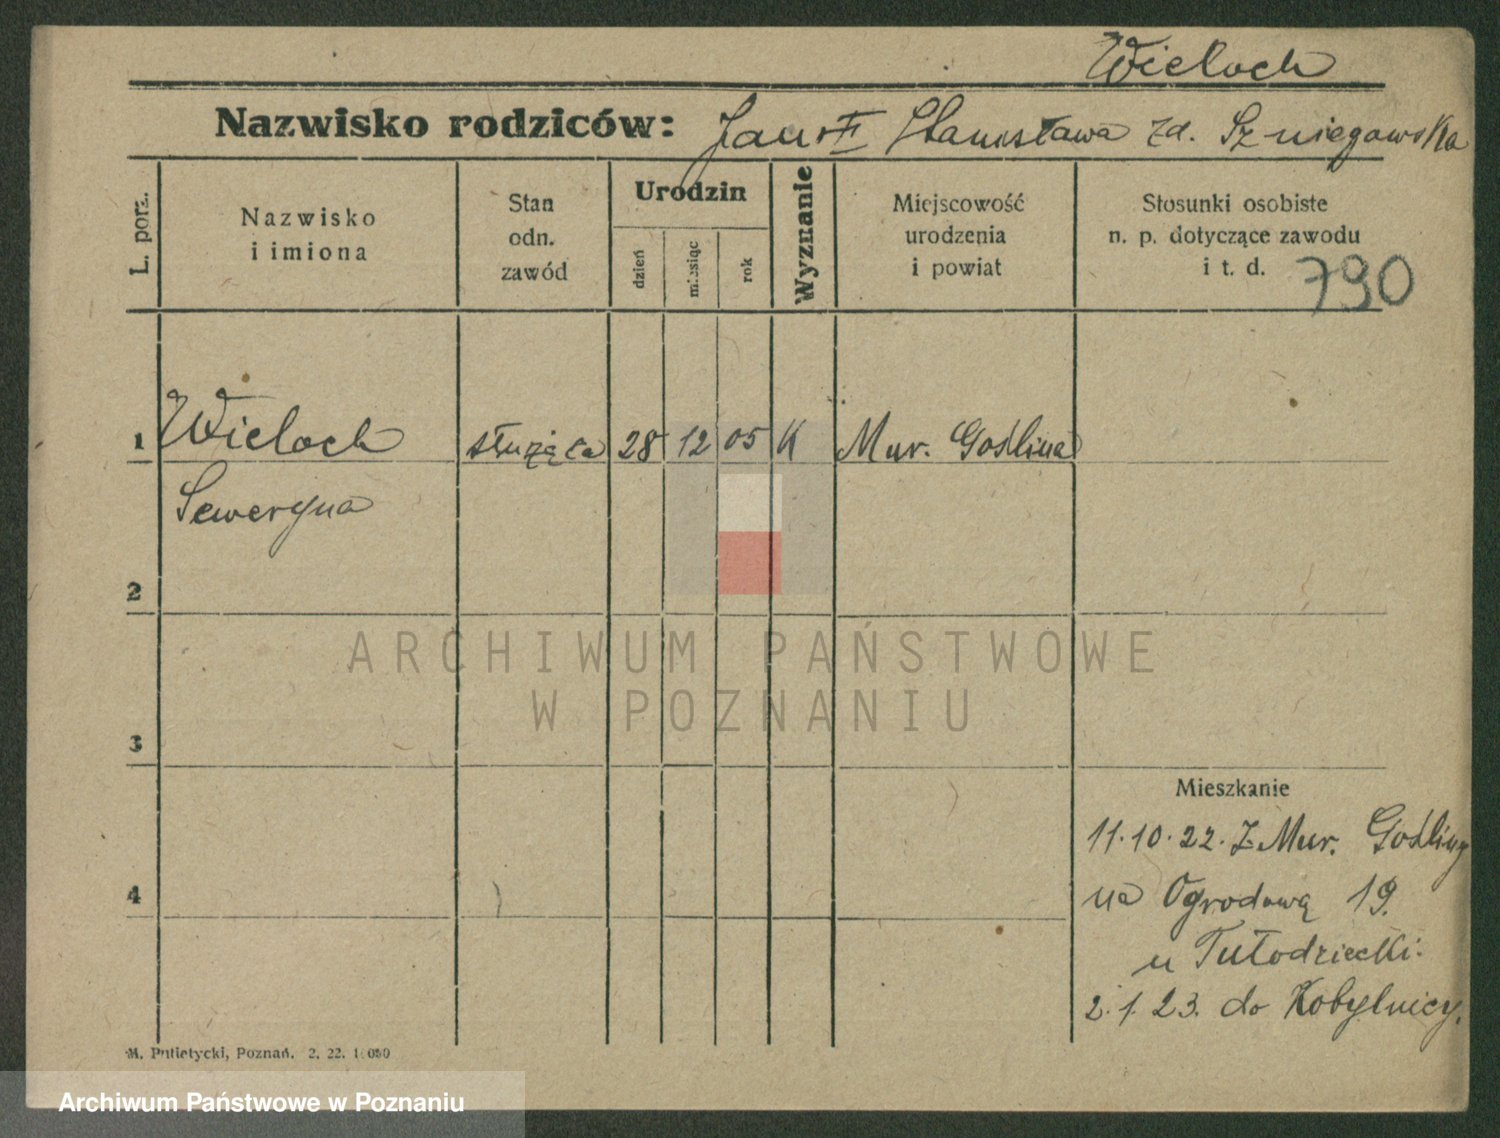 Wieloch
Nazwisko rodziców: Jan Stanisława zd. Szniegowska
L. porz.
Nazwisko
i imiona
Stan
odn.
zawód
Urodzin
dzień
miesiąc
rok
Wyznanie
Miejscowość
urodzenia
i powiat
Stosunki osobiste
n. p. dotyczące zawodu
i t. d. 790
1 Wieloch służąca 28 12 05 K Mur. Goślina
Seweryna
2
ARCHIWUM PAŃSTWOWE
W POZNANIU
3
Mieszkanie
11.10.22. Z Mur. Gośliny
4
na Ogrodową 19.
u Tułodziecki.
2.1.23. do Kobylnicy.
M. Putiatycki, Poznań. 2. 22.
Archiwum Państwowe w Poznaniu